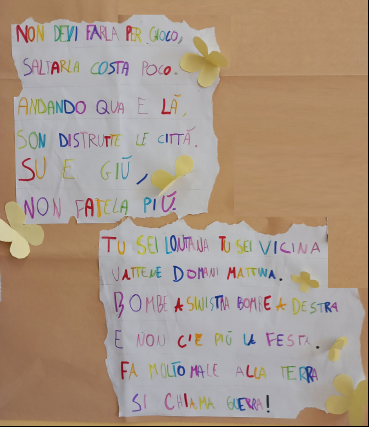 NON DEVI FARLA PER GIOCO,
SALTARLA COSTA POCO.
ANDANDO QUA E LÀ,
SON DISTRUTTE LE CITTÀ.
SU E GIÙ,
NON FATELA PIÙ.
TU SEI LONTANA TU SEI VICINA
VATTENE DOMANI MATTINA.
BOMBE A SINISTRA BOMBE A DESTRA
E NON C'E PIÙ LA FESTA.
FA MOLTO MALE ALLA TERRA
SI CHIAMA GUERRA!